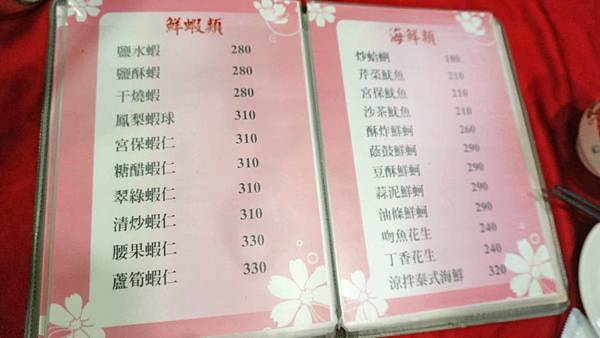 鮮蝦類
鹽水蝦 280
鹽酥蝦 280
干燒蝦 280
鳳梨蝦球 310
宮保蝦仁 310
糖醋蝦仁 310
翠綠蝦仁 310
清炒蝦仁 310
腰果蝦仁 330
蘆筍蝦仁 330
海鮮類
炒蛤蜊 180
芹菜魷魚 210
宮保魷魚 210
沙茶魷魚 210
酥炸鮮蚵 260
蔭鼓鮮蚵 290
豆酥鮮蚵 290
蒜泥鮮蚵 290
油條鮮蚵 290
吻魚花生 240
丁香花生 240
涼拌泰式海鮮 320